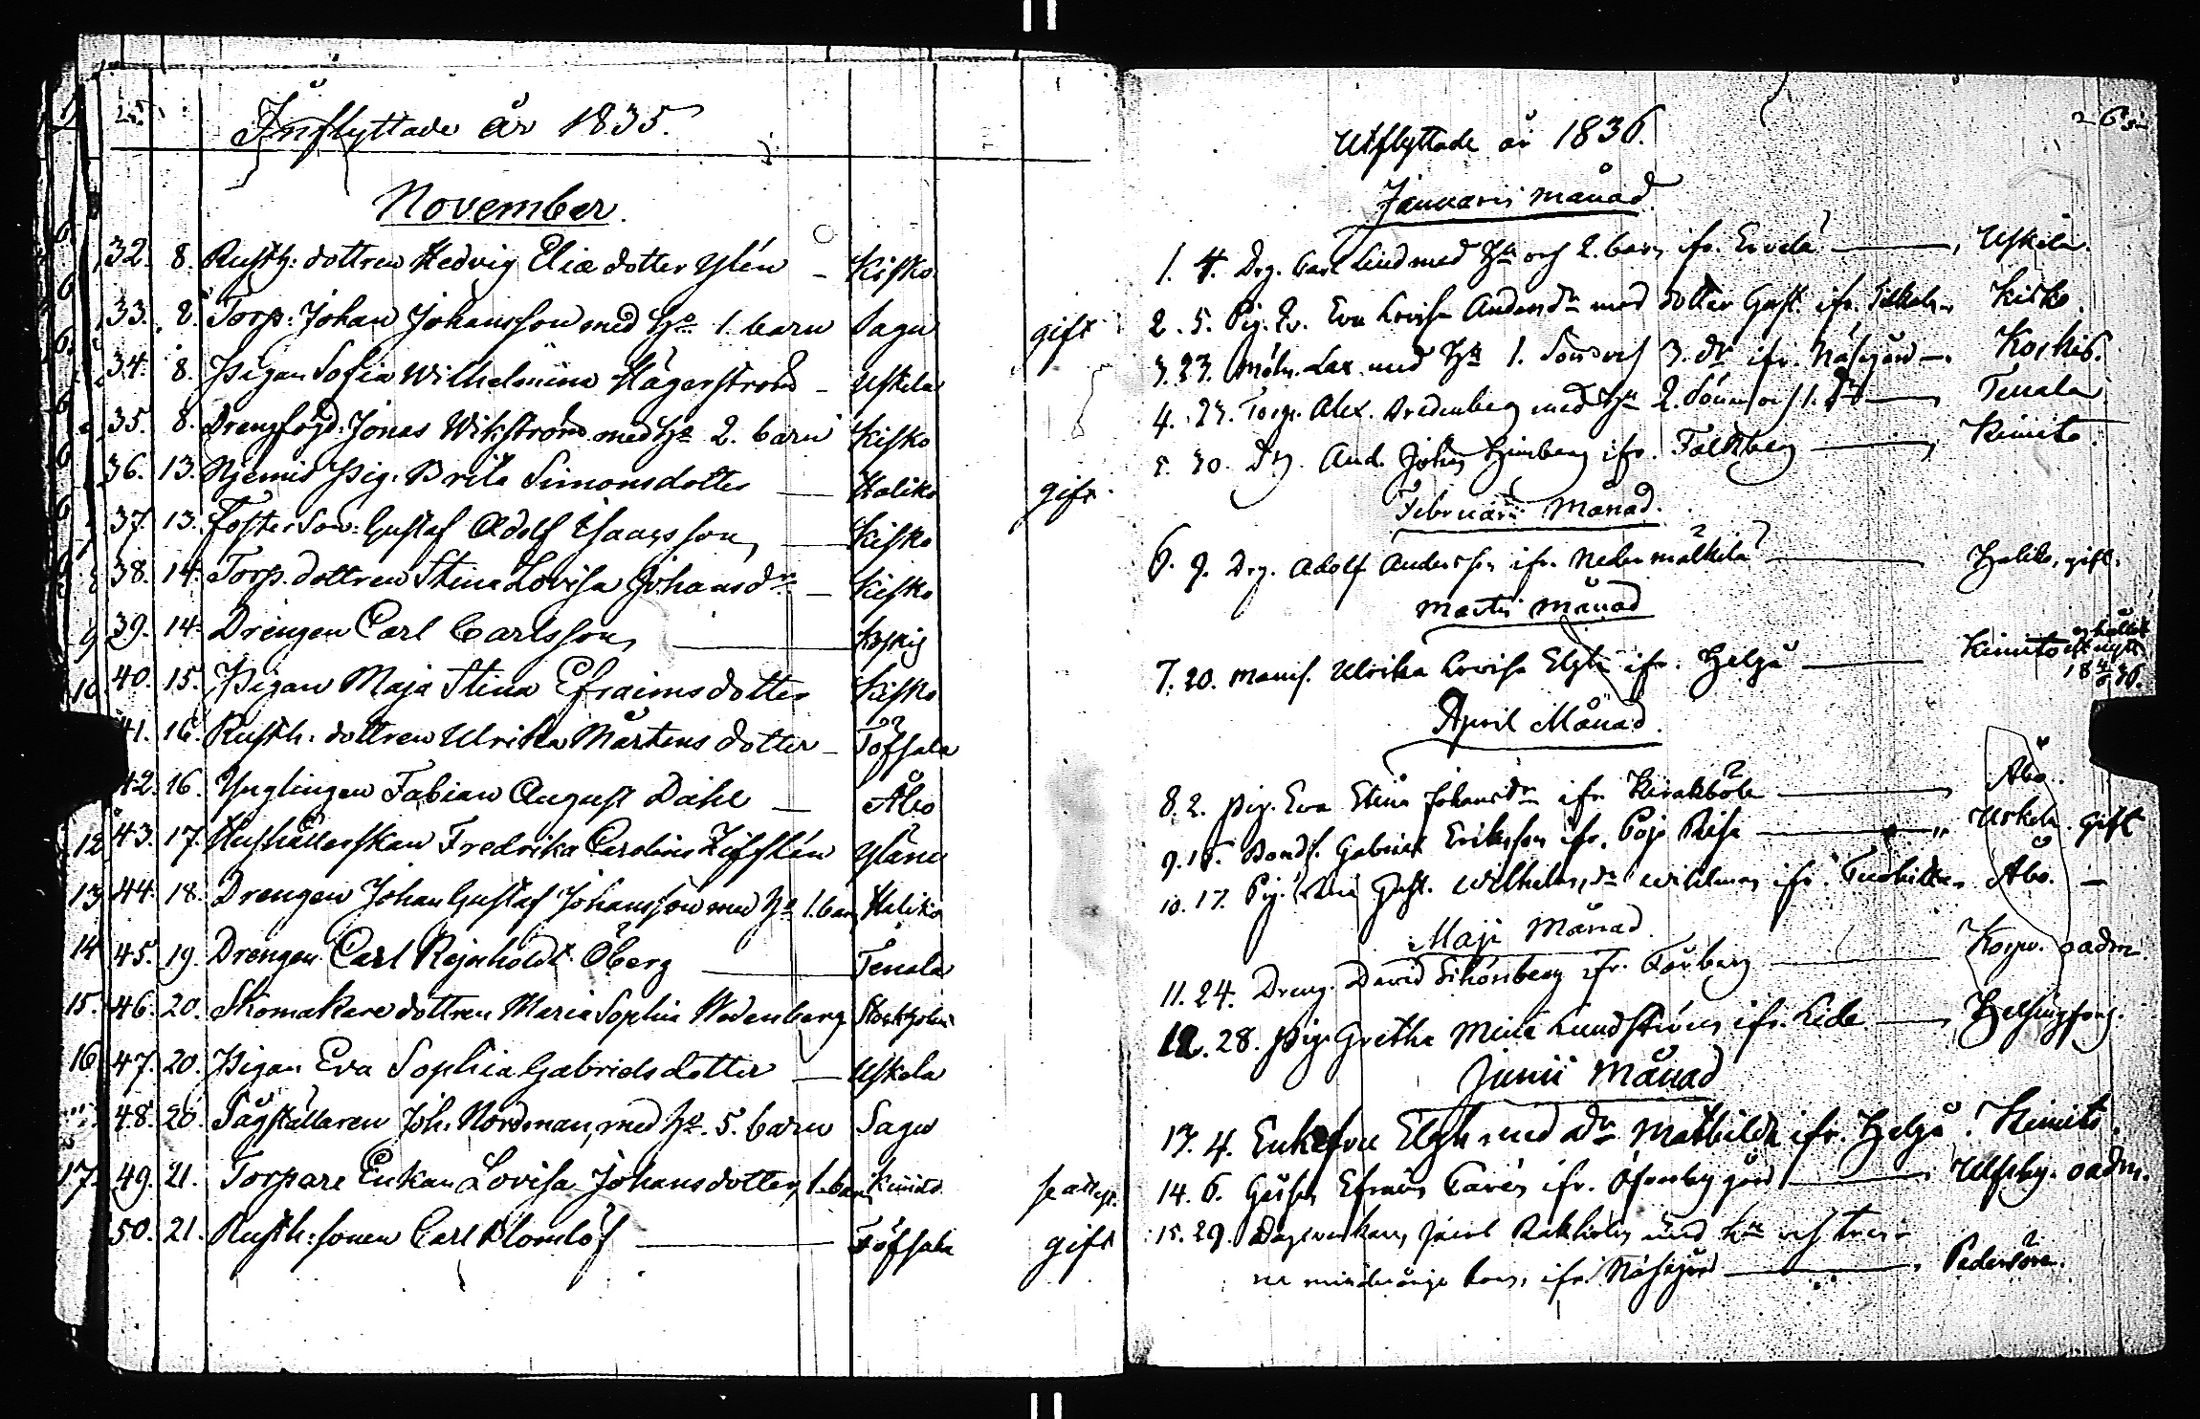 25.
Inflyttade år 1835.
November.
32. 8. Rusth: dottren Hedvig Eliædotter Ylén - Kisko
33. 8. Torp: Johan Johansson med Hu 1. barn Sagu
34. 8. Pigan Sofia Wilhelmina Hägerström - Uskela
35. 8. Drengfogd: Jonas Wikström med Hu 2. barn Kisko
36. 13. Njemis Pig. Brita Simonsdotter — Haliko
37. 13. Fosterson: Gustaf Adolf Isaacsson — Kisko
38. 14. Torp. dottren Stina Lovisa Johansdr — Kisko
39. 14. Drengen Carl Carlsson — Koskis
40. 15. Pigan Maja Stina Efraimsdotter Kisko
41. 16. Rusth: dottren Ulrika Mårtensdotter - Töfsala
42. 16. Ynglingen Fabian August Dahl — Åbo
12 43. 17. Hushållerskan Fredrika Carolina Yläne
13 44. 18. Drengen Johan Gustaf Johansson med Hu 1. barn Haliko
14 45. 19. Drengen Carl Rejnholdt Öberg — Tenala
15. 46. 20. Skomakare dottren Maria Sophia Stockholm
16 47. 20. Pigan Eva Sophia Gabrielsdotter — Uskela
48. 20. Sågställaren Joh. Nordman, med Hu. 5. barn Sagu
17. 49. 21. Torpare Enkan Lovisa Johansdotter, 1. barn Kimito
50. 21. Rusth: sonen Carl Blomlöf — Töfsala
26
Utflyttade år 1836.
Januarii månad.
1. 4. Drg. Carl Lind med Hu och 2. barn ifr. Ervelä — Uskela.
gift 2. 5. Pig. Eva Lovisa Andersdr med dotter Gust. ifr. Kisko.
3. 23. Möln. Lax med Hu 1. Son och 3. dr ifr. Näsegård — Koskis.
4. 23. Torp. Alex. med Hu 2. Söner och 1. Dr — Tenala
5. 30. And. Johan ifr. Falkberg — Kimito.
Februarii Månad.
gift. 6. 9. Drg. Adolf Andersson ifr. Nedermälkilä — Haliko, gift.
Martii Månad
7. 20. Mams. Ulrika Lovisa Elgh ifr. Helgå — Kimito
April Månad.
8. 2. Pig. Eva Stina Johansdr ifr. — Åbo.
9. 15. Bonds. Gabriel Eriksson ifr. Pojo — Uskela. gift
10. 17. Pig. Gust. Wilhelmsdr ifr. Åbo. —
Maji Månad.
11. 24. Dreng. David Schönberg ifr. — Korpo. oadm.
12. 28. Pig. Gretha Mina Lundström ifr. — Helsingfors.
Junii Månad
13. 4. Enkefru Elgh med dr Mathilda ifr. Helgå. Kimito.
14. 6. ifr. gård — Ulfsby. oadm.
gift 15. 29. Jacob med Hu och tre
minderårige barn, ifr. Näsegård — Pedersöre.